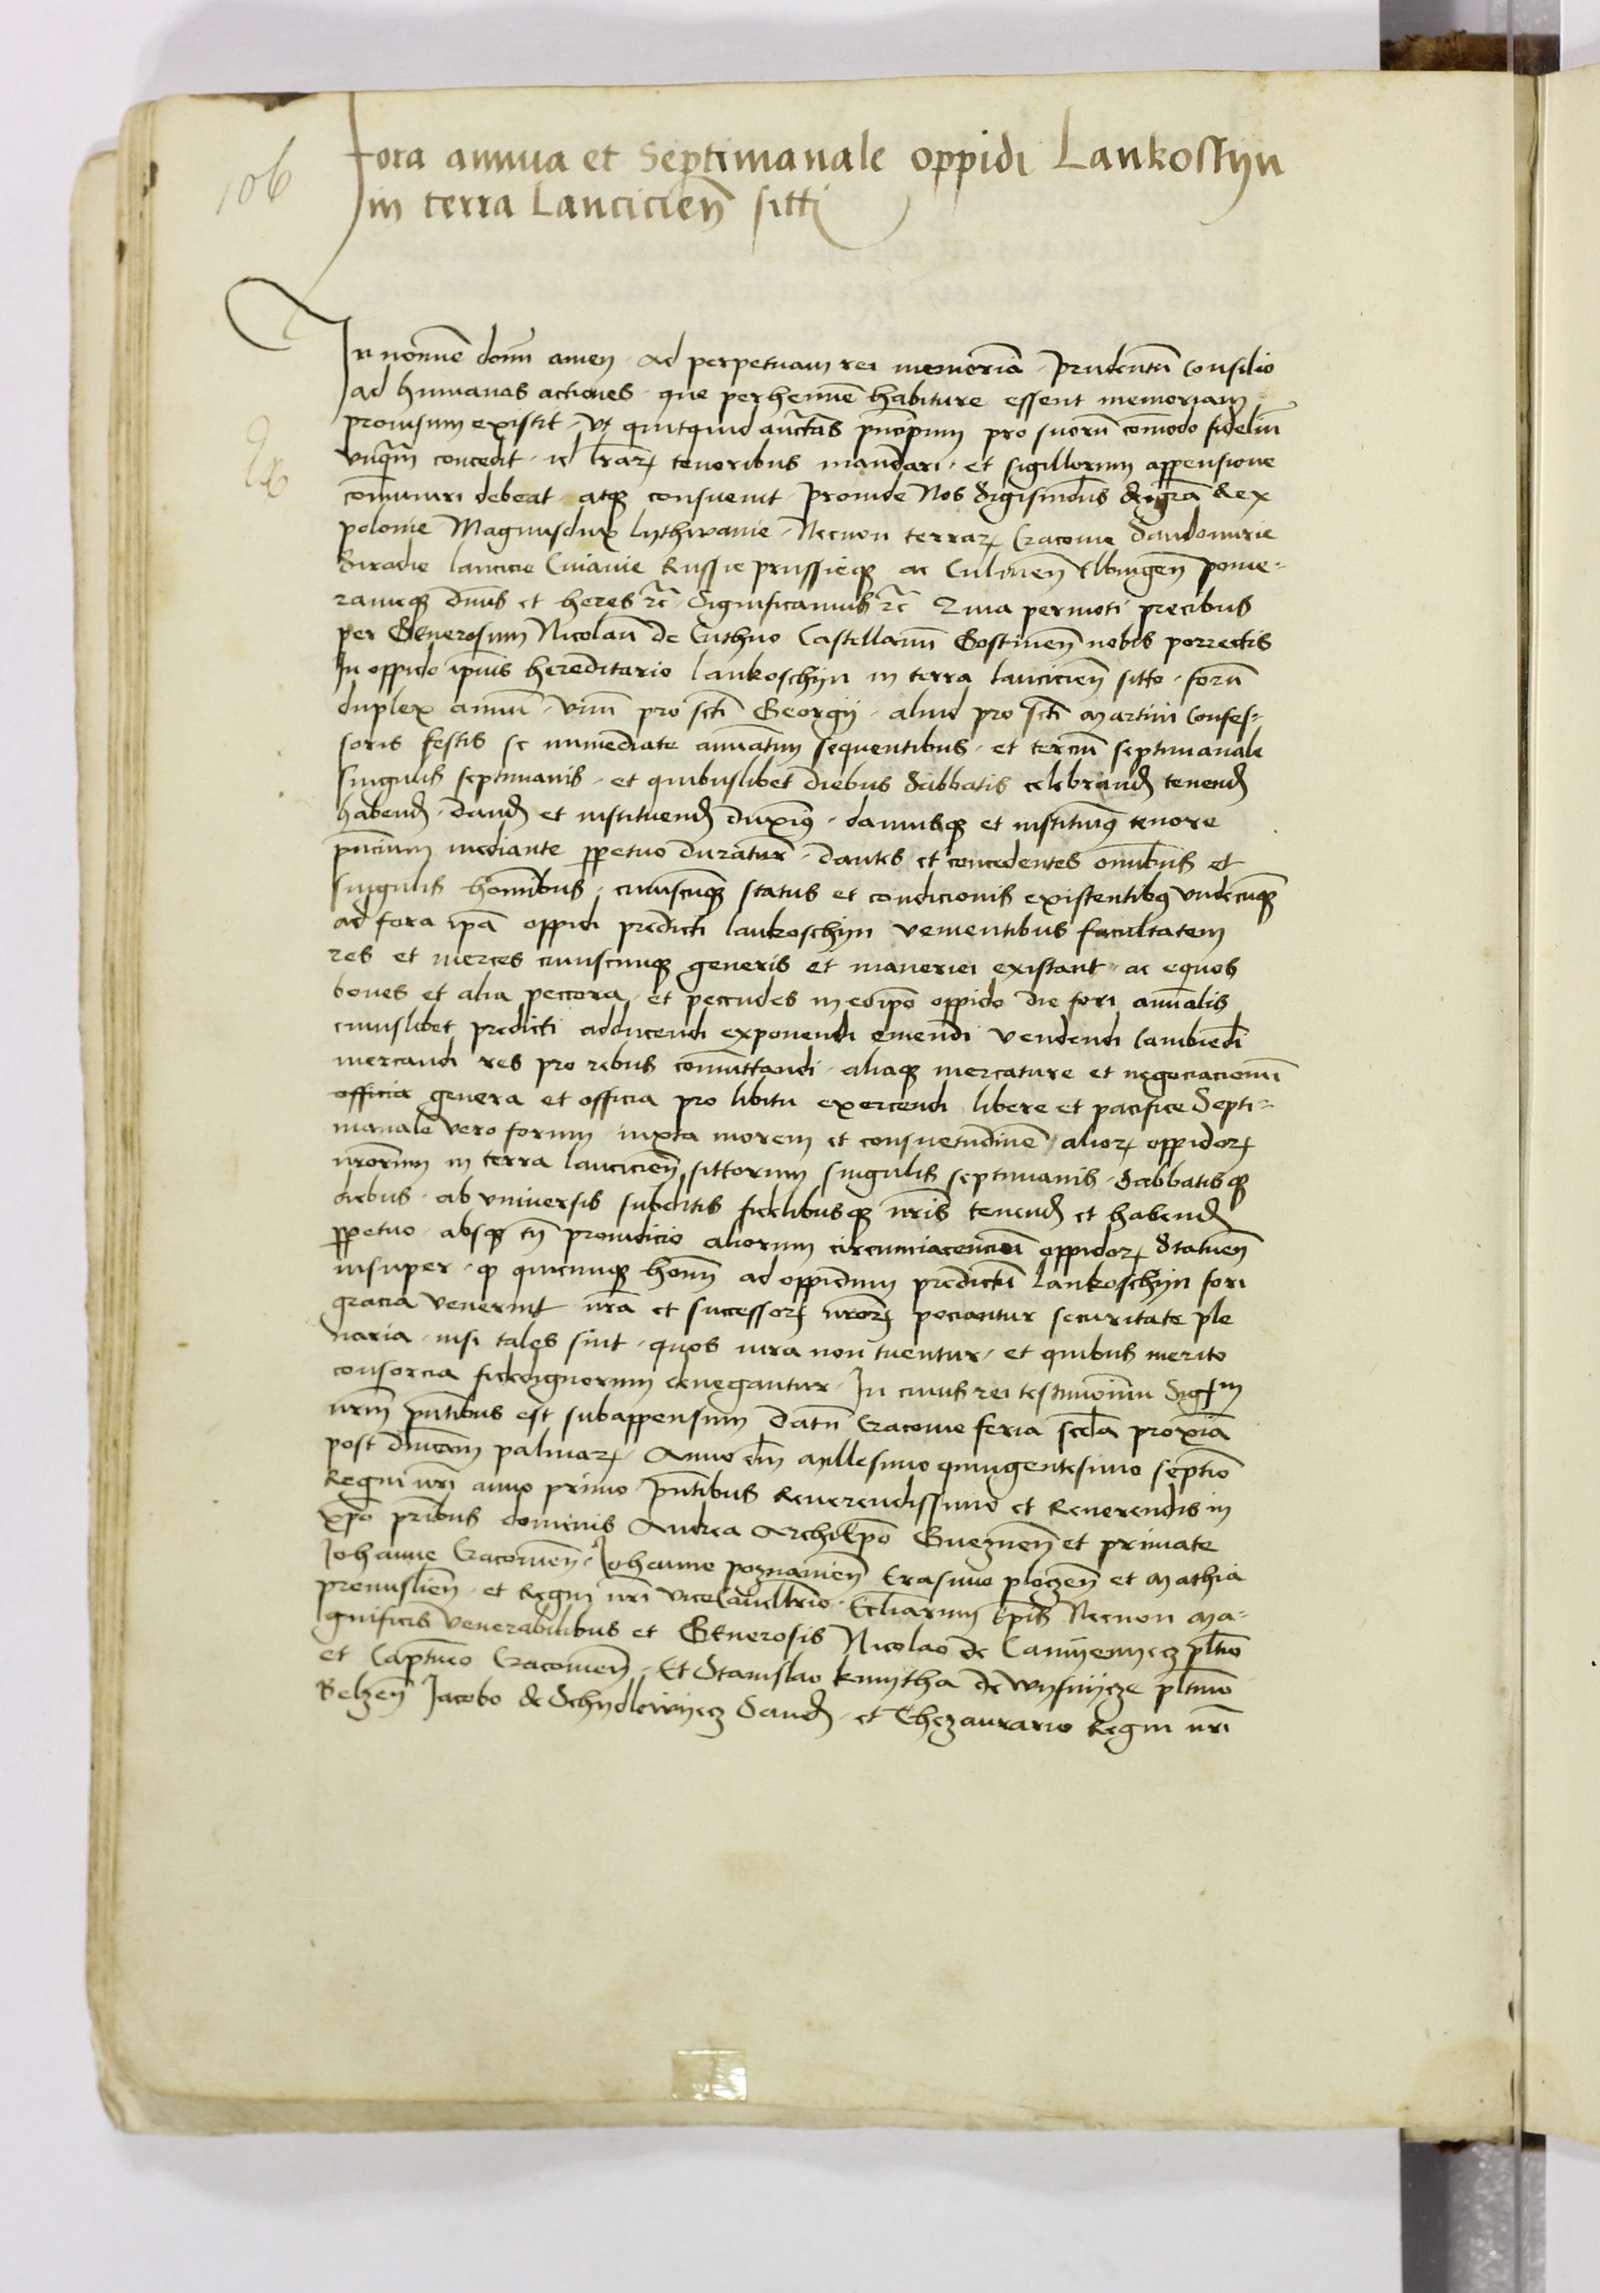 106
Fora annua et Septimanale oppidi Lankossyn
in terra Lancicien̄ sitti
In nomine domī amen . Ad perpetuam rei memoriā . Prudentū Consilio
ad humanas actiones . que perhennē habiture essent memoriam
prouisum existit . Vt quitquid auctās principum pro suorū cōmodo fideliū
vnq̄m concedit . id lr̄aꝝ tenoribus mandari . et sigillorum appensione
cōmuniri debeat atqꝫ consueuit . Proinde Nos Sigismūdus dei gr̄a Rex
polonie Magnusdux lythwanie . Necnon terraꝝ Cracouie Sandomirie
Siradie lancicie Cuiauie Russie prussieqꝫ ac Culmen̄ Elbingen̄ pome-
ranieqꝫ dn̄us et heres ꝛc̄ . Significamus ꝛc̄ Quia permoti precibus
per Generosum Nicolaū de Cuthno Castellanū Gostinen̄ nobis porrectis
In oppido ipsius hereditario lankoschyn in terra lancicien̄ sitto . forū
duplex annuū . vnū pro sc̄ti Georgij . aliud pro sc̄ti Martini Confes-
soris festis se immediate annuatim sequentibus . et terciū septimanale
singulis septimanis . et quibuslibet diebus Sabbatis celebrand̄ tenend̄
habend̄ . dand̄ et instituend̄ duximꝰ . damusqꝫ et instituimꝰ tenore
pn̄cium mediante ꝑpetuo duraturū . dantes et concedentes om̄ibus et
singulis hom̄ibus . cuiuscūqꝫ status et condicionis existentibꝰ vndecūqꝫ
ad fora ip̄a oppidi predicti lankoschyn venientibus facultatem
res et merces cuiuscunqꝫ generis et maneriei existant . ac equos
boues et alia peccora . et peccudes in eoip̄o oppido die fori annualis
cuiuslibet predicti adducendi exponendi emendi vendendi Cambiēdi
mercandi res pro rebus cōmuttandi . aliaqꝫ mercature et negociacionū
officia genera et officia pro libitu exercendi libere et pacifice Septi-
manale vero forum iuxta morem et consuetudinē alioꝝ oppidoꝝ
nr̄orum in terra lancicien̄ sittorum singulis septimanis . Sabbatisqꝫ
diebus . ab vniuersis subditis fidelibusqꝫ nr̄is tenend̄ et habend̄
ꝑpetuo . absqꝫ tn̄ preiudicio aliorum circumiacenciū oppidoꝝ Statuen̄
insuper . ꝙ quicunqꝫ hom̄ ad oppidum predictū lankoschyn fori
gracia venerint nr̄a et successoꝝ nr̄oꝝ pociantur securitate ple
naria . nisi tales sint . quos iura non tuentur . et quibus merito
consorcia fidedignorum denegantur . In cuius rei testimonium Sigᵐ
nr̄m pn̄tibus est subappensum datū Cracouie feria scd̄a proxīa
post dn̄icam palmaꝝ . Anno dn̄i Millesimo quingentesimo septīo
Regni nr̄i anno primo Pn̄tibus Reuerendissimo et Reuerendis in
xp̄o pr̄ibus dominis Andrea Archiep̄o Gneznen̄ et primate
Johanne Cracouien̄ . Johanne poznanien̄ Erasmo ploczen̄ et Mathia
premislien̄ . et Regni nr̄i vicecancellr̄io . Eccl̄iarum Ep̄is Necnon Ma-
gnificis venerabilibus et Generosis Nicolao de Camyenyecz pl̄tino
et Capitneo Cracouien̄ . Et Stanislao kmytha de wysnycze pl̄tino
Belzen̄ Jacobo de Schydlowyecz Sand̄ . et Thezaurario Regni nr̄i